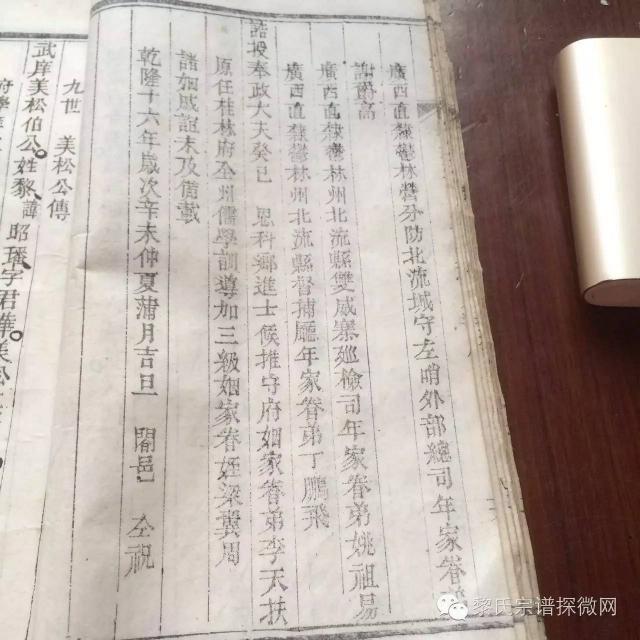 廣西直隸欝林營分防北流城守左哨外部總司年家眷
謝尉高
廣西直隸欝林州北流縣雙威寨廵檢司年家眷弟姚祖易
廣西直隸欝林州北流縣督捕廳年家眷弟丁鵬飛
誥授奉政大夫癸巳 恩科鄉進士候推守府姻家眷弟李天扶
原任桂林府全州儒學訓導加三級姻家眷姪梁冀周
諸姻戚誼未及備載
乾隆十六年歲次辛未仲夏蒲月吉旦 闔邑 仝祝
九世 美松公傳
武庠美松伯公。姓黎。諱昭璜字君華。美松
府學
黎氏宗谱探微网